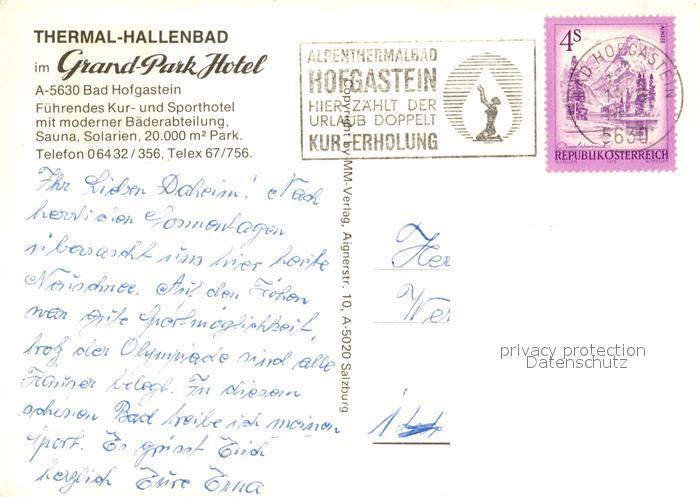 THERMAL-HALLENBAD
im Grand-Park Hotel
A-5630 Bad Hofgastein
Führendes Kur- und Sporthotel
mit moderner Bäderabteilung,
Sauna, Solarien, 20.000 m² Park.
Telefon 06432/356, Telex 67/756.
Ihr Lieben Daheim! Nach
herrlichen Sonnentagen
überrascht uns hier heute
Neuschnee. Auf den Höhen
war gute Sportmöglichkeit,
trotz der Olympiade sind alle
Häuser belegt. In diesem
schönen Bad treibe ich meinen
Sport. Es grüsst Euch
herzlich Eure Erna
Copyright by MM-Verlag, Aignerstr. 10, A-5020 Salzburg
ALPENTHERMALBAD
HOFGASTEIN
HIER ZÄHLT DER
URLAUB DOPPELT
KUR-ERHOLUNG
4S
BAD HOFGASTEIN
5630
REPUBLIK ÖSTERREICH
Her
Wer
privacy protection
Datenschutz